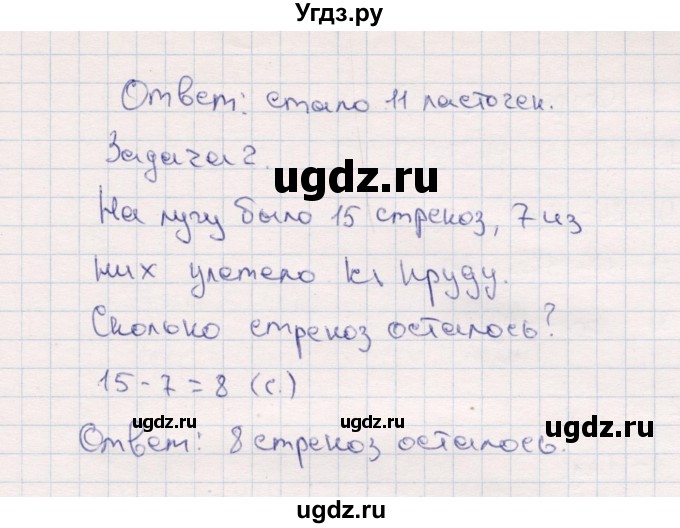 Угдз.ру
Ответ: стало 11 ласточек.
Задача 2.
ugdz.ru
На лугу было 15 стрекоз, 7 из
них улетело к пруду.
Сколько стрекоз осталось?
15-7=8 (с.)
ugdz.ru ugdz.ru ugdz.ru
Ответ: 8 стрекоз осталось.
ugdz.ru